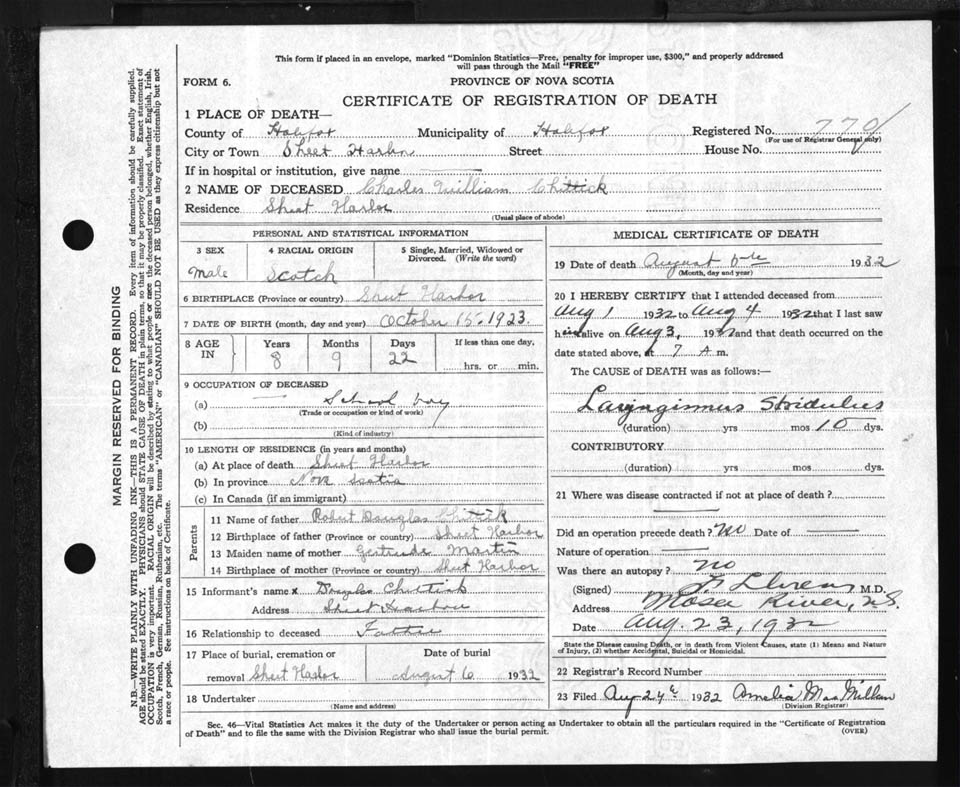 This form if placed in an envelope, marked "Dominion Statistics—Free, penalty for improper use, $300," and properly addressed
will pass through the Mail "FREE"
FORM 6.
PROVINCE OF NOVA SCOTIA
CERTIFICATE OF REGISTRATION OF DEATH
1 PLACE OF DEATH—
County of Halifax Municipality of Halifax Registered No. 770
(For use of Registrar General only)
City or Town Sheet Harbor Street House No.
If in hospital or institution, give name
2 NAME OF DECEASED Charles William Chittick
Residence Sheet Harbor
(Usual place of abode)
PERSONAL AND STATISTICAL INFORMATION
3 SEX 4 RACIAL ORIGIN 5 Single, Married, Widowed or
Divorced. (Write the word)
Male Scotch
6 BIRTHPLACE (Province or country) Sheet Harbor
7 DATE OF BIRTH (month, day and year) October 15 1923
8 AGE IN Years Months Days If less than one day,
8 9 22 hrs. or min.
9 OCCUPATION OF DECEASED
(a) School boy
(Trade or occupation or kind of work)
(b)
(Kind of industry)
10 LENGTH OF RESIDENCE (in years and months)
(a) At place of death Sheet Harbor
(b) In province Nova Scotia
(c) In Canada (if an immigrant)
Parents
11 Name of father Robert Douglas Chittick
12 Birthplace of father (Province or country) Sheet Harbor
13 Maiden name of mother Gertrude Martin
14 Birthplace of mother (Province or country) Sheet Harbor
15 Informant's name x Douglas Chittick
Address Sheet Harbor
16 Relationship to deceased Father
17 Place of burial, cremation or Date of burial
removal Sheet Harbor August 6 1932
18 Undertaker
(Name and address)
MEDICAL CERTIFICATE OF DEATH
19 Date of death August 6th 1932
(Month, day and year)
20 I HEREBY CERTIFY that I attended deceased from
Aug 1 1932 to Aug 4 1932 that I last saw
him alive on Aug 3, 1932 and that death occurred on the
date stated above, at 7 A m.
The CAUSE of DEATH was as follows:—
Laryngismus Stridulus
(duration) yrs mos 10 dys.
CONTRIBUTORY
(duration) yrs mos dys.
21 Where was disease contracted if not at place of death?
Did an operation precede death? No Date of
Nature of operation
Was there an autopsy? no
(Signed) M.D.
Address Moser River, N.S.
Date Aug. 23, 1932
State the Disease causing Death, or in death from Violent Causes, state (1) Means and Nature
of Injury, (2) whether Accidental, Suicidal or Homicidal.
22 Registrar's Record Number
23 Filed Aug 24th 1932 Amelia MacMillan
(Division Registrar)
Sec. 46—Vital Statistics Act makes it the duty of the Undertaker or person acting as Undertaker to obtain all the particulars required in the "Certificate of Registration
of Death" and to file the same with the Division Registrar who shall issue the burial permit.
(OVER)
MARGIN RESERVED FOR BINDING
N.B.—WRITE PLAINLY WITH UNFADING INK—THIS IS A PERMANENT RECORD. Every item of information should be carefully supplied.
AGE should be stated EXACTLY. PHYSICIANS should STATE CAUSE OF DEATH in plain terms, so that it may be properly classified. Exact statement of
OCCUPATION is very important. RACIAL ORIGIN will be described by stating to what people or race the deceased person belonged, whether English, Irish,
Scotch, French, German, Russian, Ruthenian, etc. The terms "AMERICAN" or "CANADIAN" SHOULD NOT BE USED as they express citizenship but not
a race or people. See instructions on back of Certificate.